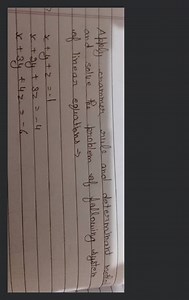 Apply crammer rule and determinant rule
and solve the problem of following system
of linear equations :-
x + y + z = -1
x + 2y + 3z = -4
x + 3y + 4z = -6